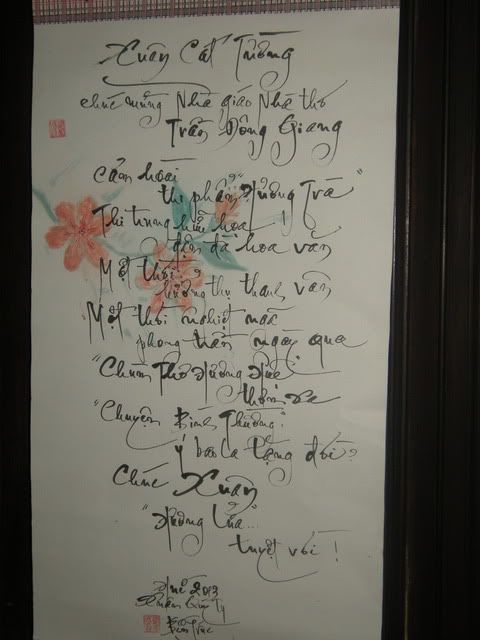 Xuân Cát Tường
chúc mừng Nhà giáo Nhà thơ
Trần Đông Giang
Cảm hoài
thi phẩm "Hương Trà"
Thi trung hữu họa !
đậm đà hoa văn
Một thời
hương thị thanh vân
Một thời nghiệt ngã
phong trần ngày qua
"Chùm Thơ Hương Huế"
thơm xa
"Chuyện Bình Thường"
ý bao la tặng đời ?
Chúc Xuân
"Hương Lúa...
tuyệt vời !
Huế 2013
Xuân Quý Tỵ